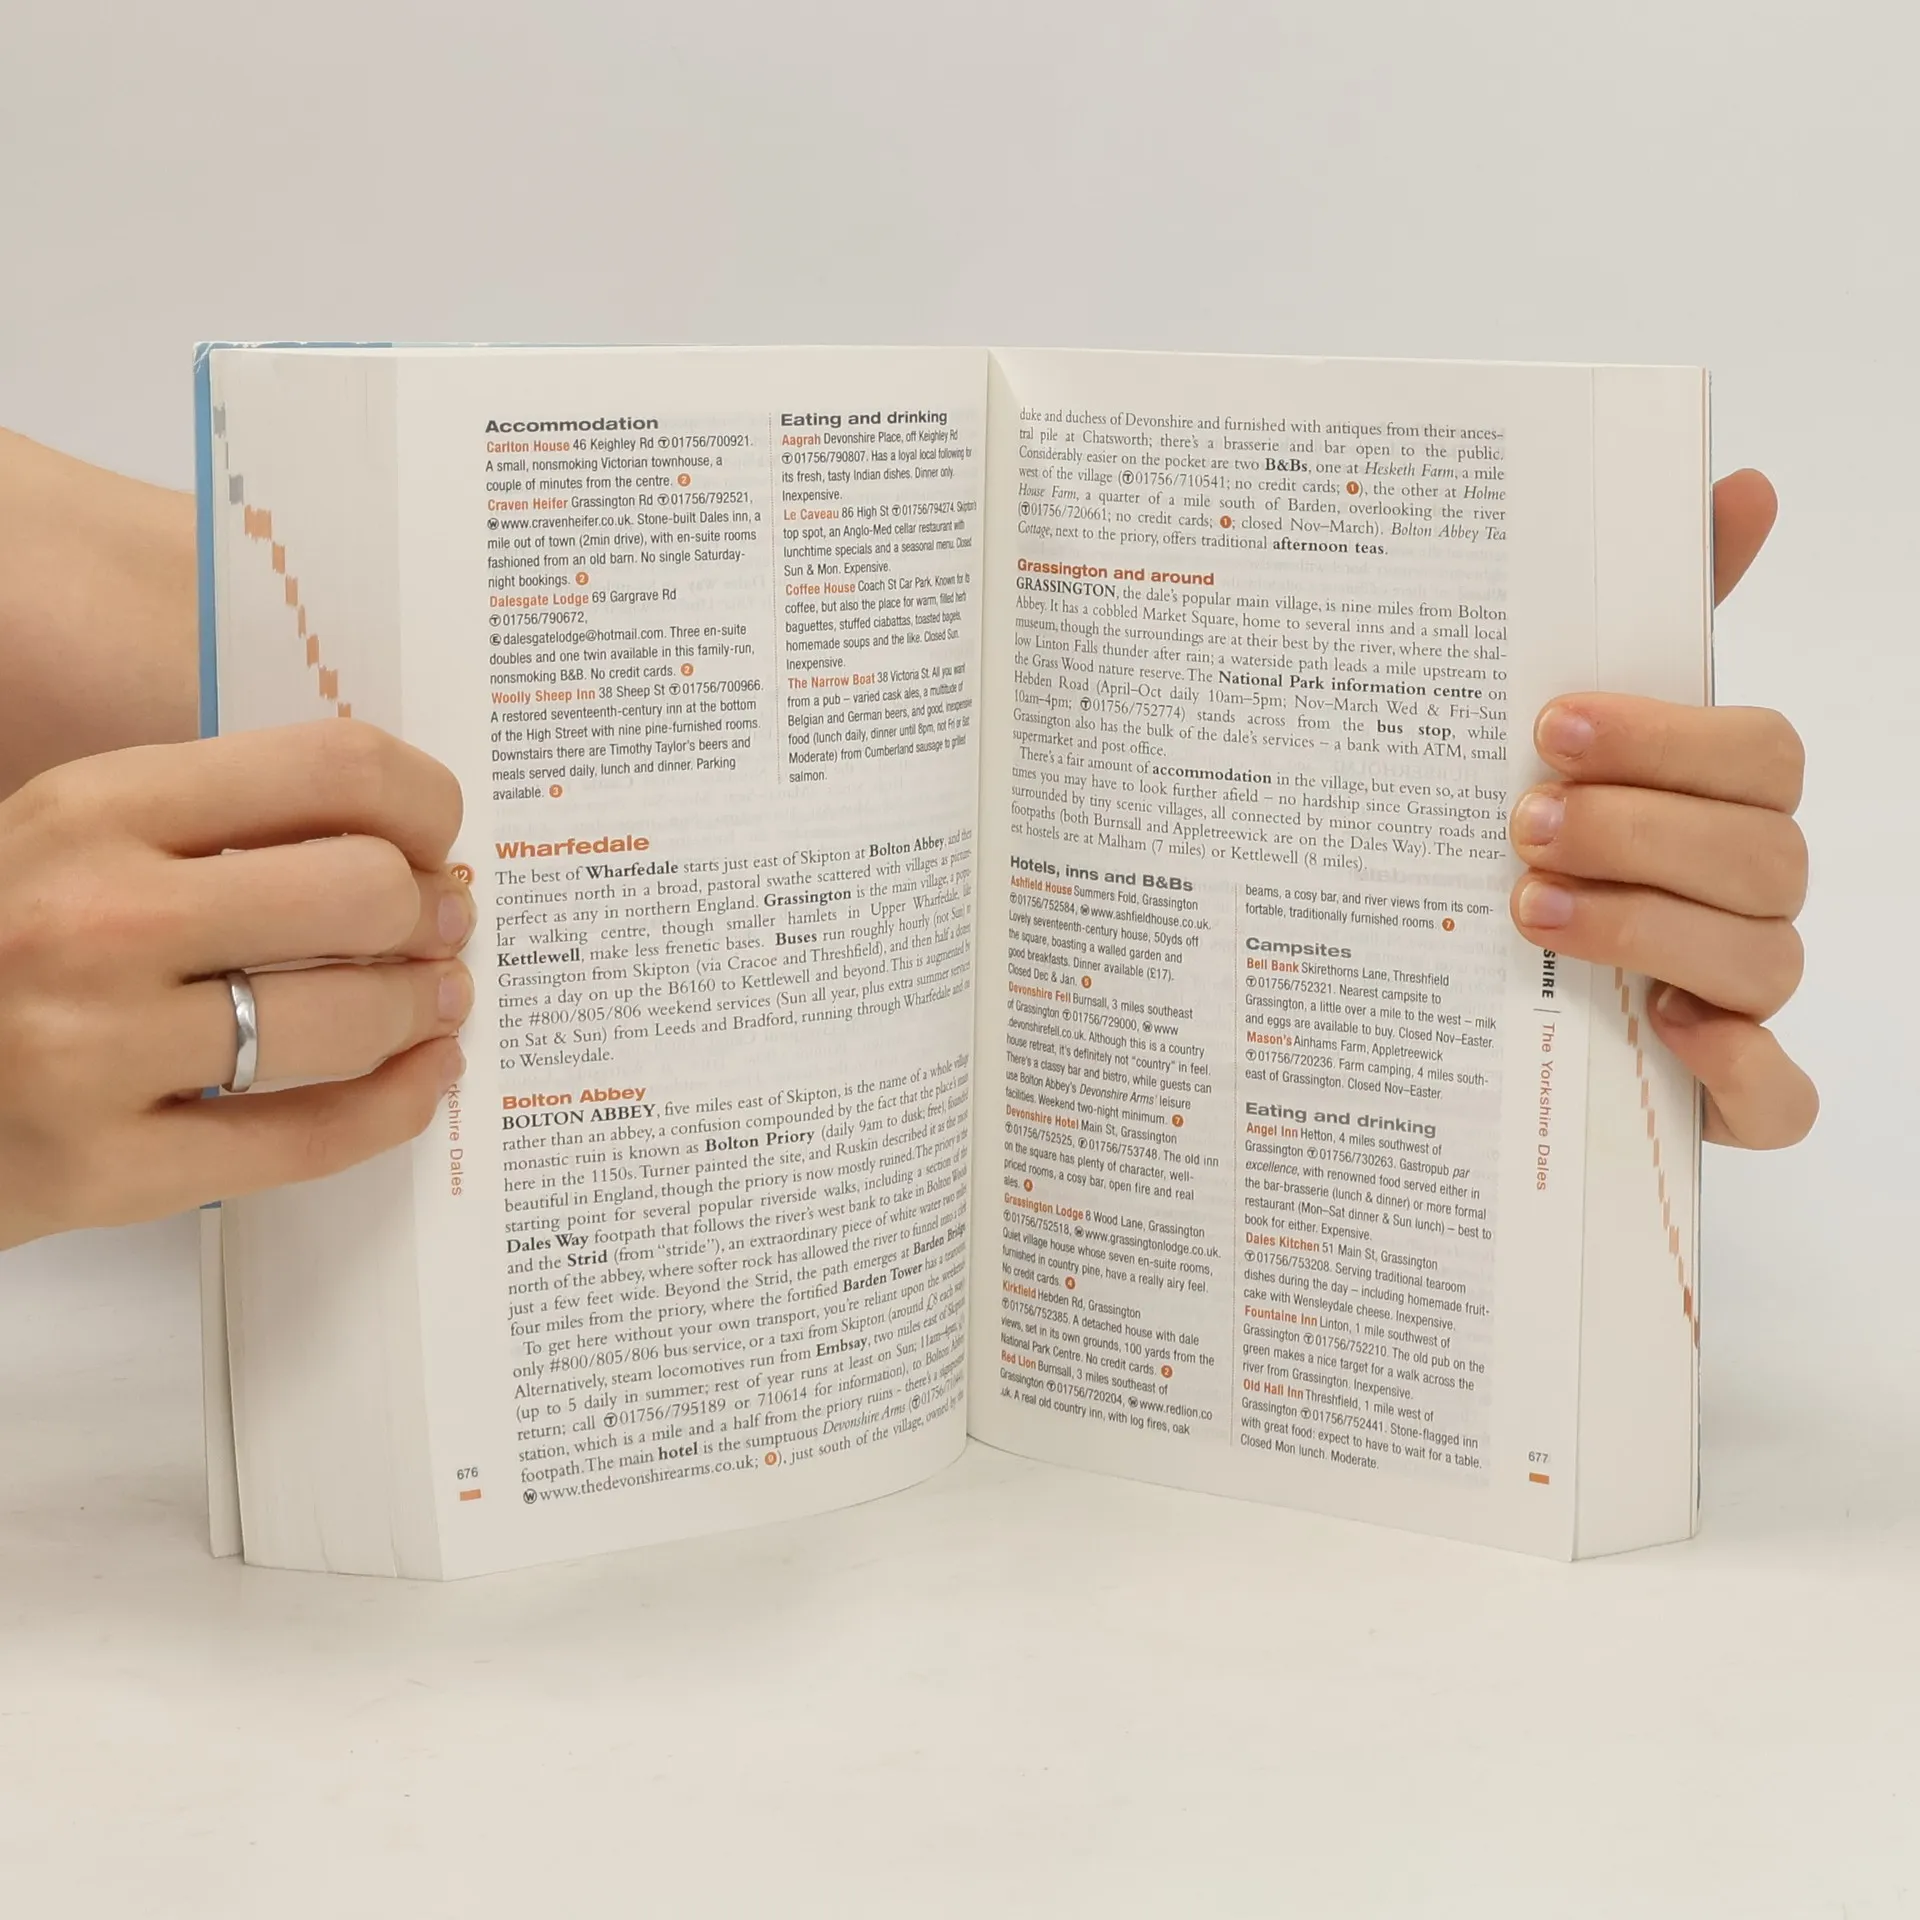 Accommodation
Carlton House 46 Keighley Rd Ⓣ01756/700921.
A small, nonsmoking Victorian townhouse, a
couple of minutes from the centre. ❷
Craven Heifer Grassington Rd Ⓣ01756/792521,
Ⓦwww.cravenheifer.co.uk. Stone-built Dales inn, a
mile out of town (2min drive), with en-suite rooms
fashioned from an old barn. No single Saturday-
night bookings. ❷
Dalesgate Lodge 69 Gargrave Rd
Ⓣ01756/790672,
Ⓔdalesgatelodge@hotmail.com. Three en-suite
doubles and one twin available in this family-run,
nonsmoking B&B. No credit cards. ❷
Woolly Sheep Inn 38 Sheep St Ⓣ01756/700966.
A restored seventeenth-century inn at the bottom
of the High Street with nine pine-furnished rooms.
Downstairs there are Timothy Taylor's beers and
meals served daily, lunch and dinner. Parking
available. ❸
Eating and drinking
Aagrah Devonshire Place, off Keighley Rd
Ⓣ01756/790807. Has a loyal local following for
its fresh, tasty Indian dishes. Dinner only.
Inexpensive.
Le Caveau 86 High St Ⓣ01756/794274 Skipton's
top spot, an Anglo-Med cellar restaurant with
lunchtime specials and a seasonal menu. Closed
Sun & Mon. Expensive.
Coffee House Coach St Car Park. Known for its
coffee, but also the place for warm, filled herb
baguettes, stuffed ciabattas, toasted bagels,
homemade soups and the like. Closed Sun.
Inexpensive.
The Narrow Boat 38 Victoria St. All you want
from a pub – varied cask ales, a multitude of
Belgian and German beers, and good, inexpensive
food (lunch daily, dinner until 8pm, not Fri or Sat
Moderate) from Cumberland sausage to grilled
salmon.
Wharfedale
The best of Wharfedale starts just east of Skipton at Bolton Abbey, and then
continues north in a broad, pastoral swathe scattered with villages as picture-
perfect as any in northern England. Grassington is the main village, a popu-
lar walking centre, though smaller hamlets in Upper Wharfedale, like
Kettlewell, make less frenetic bases. Buses run roughly hourly (not Sun) to
Grassington from Skipton (via Cracoe and Threshfield), and then half a dozen
times a day on up the B6160 to Kettlewell and beyond. This is augmented by
the #800/805/806 weekend services (Sun all year, plus extra summer services
on Sat & Sun) from Leeds and Bradford, running through Wharfedale and on
to Wensleydale.
Bolton Abbey
BOLTON ABBEY, five miles east of Skipton, is the name of a whole village
rather than an abbey, a confusion compounded by the fact that the place's main
monastic ruin is known as Bolton Priory (daily 9am to dusk; free), founded
here in the 1150s. Turner painted the site, and Ruskin described it as the most
beautiful in England, though the priory is now mostly ruined. The priory is the
starting point for several popular riverside walks, including a section of the
Dales Way footpath that follows the river's west bank to take in Bolton Woods
and the Strid (from "stride"), an extraordinary piece of white water two miles
north of the abbey, where softer rock has allowed the river to funnel into a cleft
just a few feet wide. Beyond the Strid, the path emerges at Barden Bridge,
four miles from the priory, where the fortified Barden Tower has a tearoom
To get here without your own transport, you're reliant upon the weekend
only #800/805/806 bus service, or a taxi from Skipton (around £8 each way)
Alternatively, steam locomotives run from Embsay, two miles east of Skipton
(up to 5 daily in summer; rest of year runs at least on Sun; 11am–4pm,
return; call Ⓣ01756/795189 or 710614 for information), to Bolton Abbey
station, which is a mile and a half from the priory ruins - there's a signposted
footpath. The main hotel is the sumptuous Devonshire Arms (Ⓣ01756/
Ⓦwww.thedevonshirearms.co.uk; ❾), just south of the village, owned by the
12
rkshire Dales
676
duke and duchess of Devonshire and furnished with antiques from their ances-
tral pile at Chatsworth; there's a brasserie and bar open to the public.
Considerably easier on the pocket are two B&Bs, one at Hesketh Farm, a mile
west of the village (Ⓣ01756/710541; no credit cards; ❶), the other at Holme
House Farm, a quarter of a mile south of Barden, overlooking the river
(Ⓣ01756/720661; no credit cards; ❶; closed Nov–March). Bolton Abbey Tea
Cottage, next to the priory, offers traditional afternoon teas.
Grassington and around
GRASSINGTON, the dale's popular main village, is nine miles from Bolton
Abbey. It has a cobbled Market Square, home to several inns and a small local
museum, though the surroundings are at their best by the river, where the shal-
low Linton Falls thunder after rain; a waterside path leads a mile upstream to
the Grass Wood nature reserve. The National Park information centre on
Hebden Road (April–Oct daily 10am–5pm; Nov–March Wed & Fri–Sun
10am–4pm; Ⓣ01756/752774) stands across from the bus stop, while
Grassington also has the bulk of the dale's services – a bank with ATM, small
supermarket and post office.
There's a fair amount of accommodation in the village, but even so, at busy
times you may have to look further afield – no hardship since Grassington is
surrounded by tiny scenic villages, all connected by minor country roads and
footpaths (both Burnsall and Appletreewick are on the Dales Way). The near-
est hostels are at Malham (7 miles) or Kettlewell (8 miles).
Hotels, inns and B&Bs
Ashfield House Summers Fold, Grassington
Ⓣ01756/752584, Ⓦwww.ashfieldhouse.co.uk.
Lovely seventeenth-century house, 50yds off
the square, boasting a walled garden and
good breakfasts. Dinner available (£17).
Closed Dec & Jan. ❺
Devonshire Fell Burnsall, 3 miles southeast
of Grassington Ⓣ01756/729000, Ⓦwww
.devonshirefell.co.uk. Although this is a country
house retreat, it's definitely not "country" in feel.
There's a classy bar and bistro, while guests can
use Bolton Abbey's Devonshire Arms' leisure
facilities. Weekend two-night minimum. ❼
Devonshire Hotel Main St, Grassington
Ⓣ01756/752525, Ⓕ01756/753748. The old inn
on the square has plenty of character, well-
priced rooms, a cosy bar, open fire and real
ales. ❹
Grassington Lodge 8 Wood Lane, Grassington
Ⓣ01756/752518, Ⓦwww.grassingtonlodge.co.uk.
Quiet village house whose seven en-suite rooms,
furnished in country pine, have a really airy feel.
No credit cards. ❹
Kirkfield Hebden Rd, Grassington
Ⓣ01756/752385. A detached house with dale
views, set in its own grounds, 100 yards from the
National Park Centre. No credit cards. ❷
Red Lion Burnsall, 3 miles southeast of
Grassington Ⓣ01756/720204, Ⓦwww.redlion.co
.uk. A real old country inn, with log fires, oak
beams, a cosy bar, and river views from its com-
fortable, traditionally furnished rooms. ❼
Campsites
Bell Bank Skirethorns Lane, Threshfield
Ⓣ01756/752321. Nearest campsite to
Grassington, a little over a mile to the west – milk
and eggs are available to buy. Closed Nov–Easter.
Mason's Ainhams Farm, Appletreewick
Ⓣ01756/720236. Farm camping, 4 miles south-
east of Grassington. Closed Nov–Easter.
Eating and drinking
Angel Inn Hetton, 4 miles southwest of
Grassington Ⓣ01756/730263. Gastropub par
excellence, with renowned food served either in
the bar-brasserie (lunch & dinner) or more formal
restaurant (Mon–Sat dinner & Sun lunch) – best to
book for either. Expensive.
Dales Kitchen 51 Main St, Grassington
Ⓣ01756/753208. Serving traditional tearoom
dishes during the day – including homemade fruit-
cake with Wensleydale cheese. Inexpensive.
Fountaine Inn Linton, 1 mile southwest of
Grassington Ⓣ01756/752210. The old pub on the
green makes a nice target for a walk across the
river from Grassington. Inexpensive.
Old Hall Inn Threshfield, 1 mile west of
Grassington Ⓣ01756/752441. Stone-flagged inn
with great food: expect to have to wait for a table.
Closed Mon lunch. Moderate.
SHIRE | The Yorkshire Dales
677